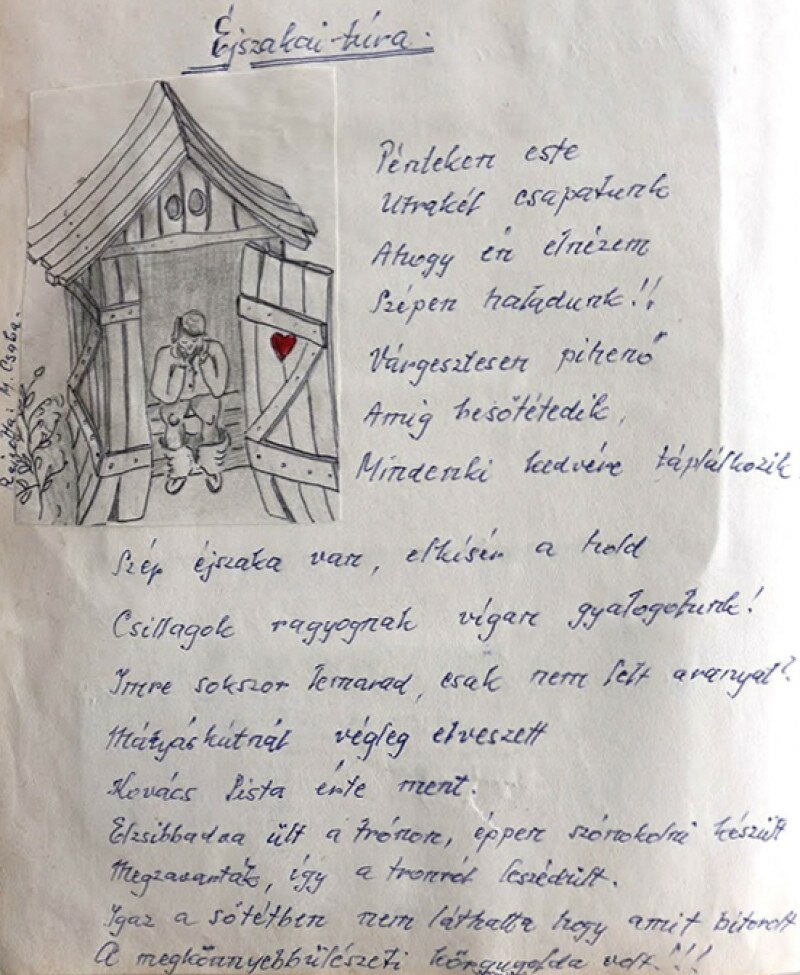 Éjszakai-túra.
Pénteken este
Utrakél csapatunk
Ahogy én elnézem
Szépen haladunk!!
Várgesztesen pihenő
Amig besötétedik,
Mindenki kedvére táplálkozik.
Szép éjszaka van, elkisér a hold
Csillagok ragyognak vigan gyalogolunk!
Imre sokszor lemarad, csak nem lelt aranyat?
Mátyáskútnál végleg elveszett
Kovács Pista érte ment.
Elzsibbadva ült a trónon, éppen szónokolni készült
Megzavarták, így a tronról leszédült.
Igaz a sötétben nem láthatta hogy amit bitorolt
A megkönnyebbülészeti volt!!!
Rajzolta: M. Csaba.